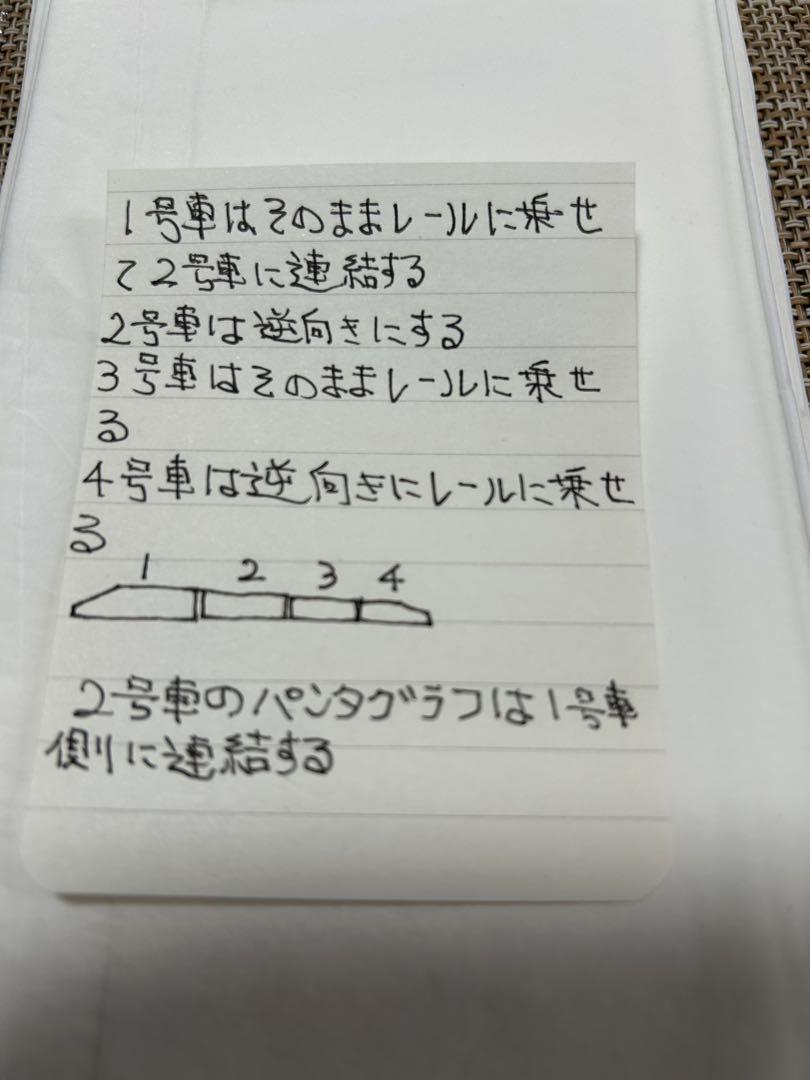 1号車はそのままレールに乗せ
て2号車に連結する
2号車は逆向きにする
3号車はそのままレールに乗せ
る
4号車は逆向きにレールに乗せ
る
1 2 3 4
2号車のパンタグラフは1号車
側に連結する